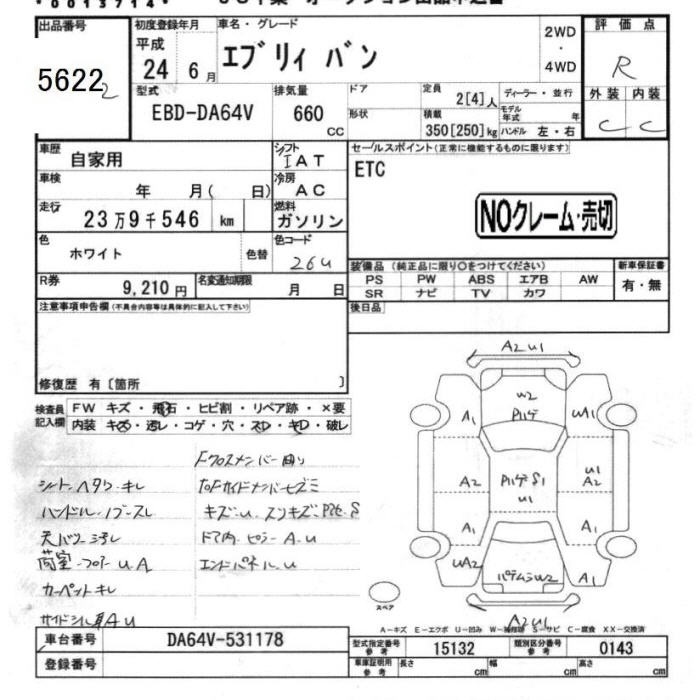 ・0013714・
出品番号
5622 2
初度登録年月
平成
24 6月
車名・グレード
エブリィ バン
2WD
・
4WD
評価点
R
外装 内装
C C
型式
EBD-DA64V
排気量
660
CC
ドア
形状
定員
2[4]人
積載
350[250]kg
ディーラー・並行
モデル年式 年
ハンドル 左・右
車歴
自家用
シフト
IAT
セールスポイント(正常に機能するものに限ります)
ETC
NOクレーム・売切
車検
年 月( 日)
冷房
AC
走行
23万9千546 km
燃料
ガソリン
色
ホワイト
色替
色コード
26U
装備品(純正品に限り〇をつけてください)
PS PW ABS エアB AW
SR ナビ TV カワ
新車保証書
有・無
R券
9,210円
名変通知期限
月 日
後日品
注意事項申告欄(不具合内容等は具体的に記入して下さい)
修復歴 有〔箇所 〕
検査員記入欄
FW キズ・飛石・ヒビ割・リペア跡・×要
内装 キズ・汚レ・コゲ・穴・スレ・キレ・破レ
Fクロスメンバー曲り
シート ヘタリ・キレ
ハンドル・ノブ・スレ
キズ・U
天バリ ヨゴレ
ドア内・ピラー・A・U
荷室・フロアー U.A
エンドパネル・U
カーペットキレ
サイドシル
A U
A2 U1
W2
Pハゲ
A1
UA1
A2
Pハゲ S1
U1
U1
A2
A1
A1
UA2
W2
A1
A2U1
スペア
A-キズ E-エクボ U-凹み W-補修跡 S-サビ C-腐食 XX-交換済
車台番号
DA64V-531178
登録番号
型式指定番号
参考
15132
類別区分番号
参考
0143
車庫証明用
参考
長さ cm 幅 cm 高さ cm